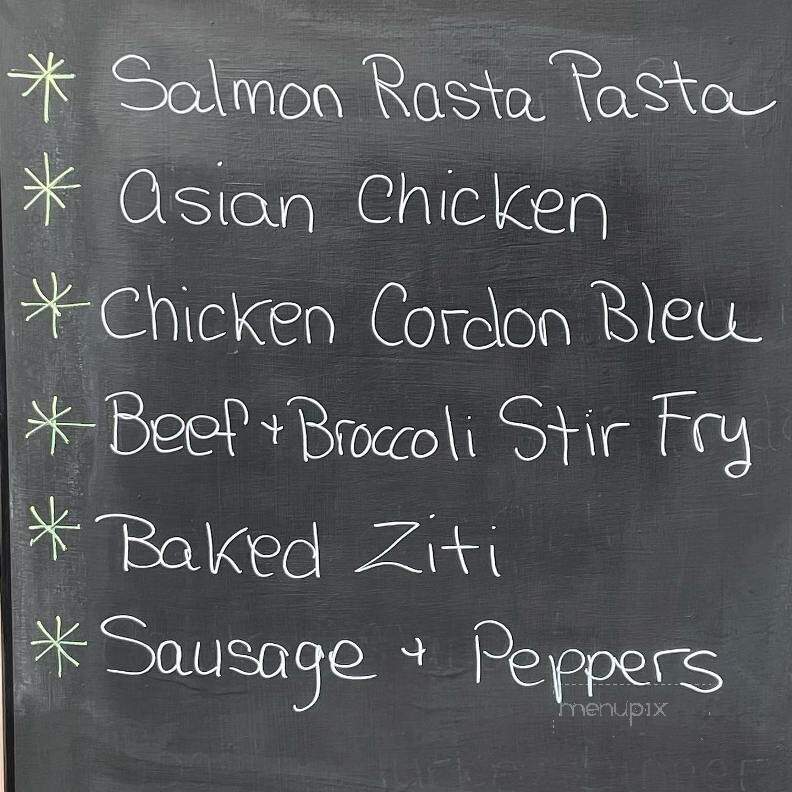 * Salmon Rasta Pasta
* Asian Chicken
* Chicken Cordon Bleu
* Beef + Broccoli Stir Fry
* Baked Ziti
* Sausage + Peppers
menupix